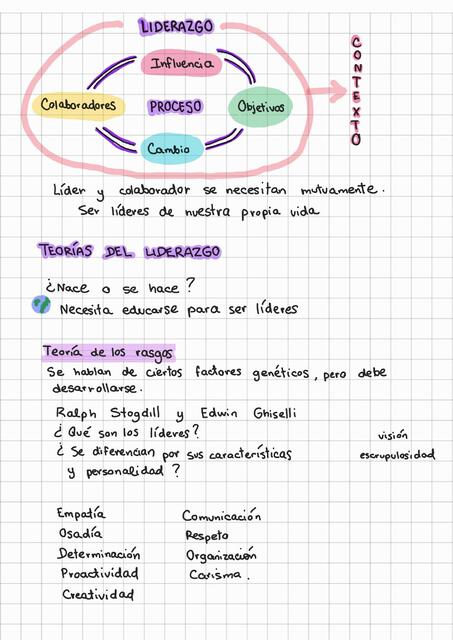 LIDERAZGO
Influencia
Colaboradores
PROCESO
Objetivos
Cambio
CONTEXTO
Líder y colaborador se necesitan mutuamente.
Ser líderes de nuestra propia vida
TEORÍAS DEL LIDERAZGO
¿Nace o se hace?
Necesita educarse para ser líderes
Teoría de los rasgos
Se hablan de ciertos factores genéticos, pero debe
desarrollarse.
Ralph Stogdill y Edwin Ghiselli
¿Qué son los líderes?
¿Se diferencian por sus características
y personalidad?
visión
escrupulosidad
Empatía
Osadía
Determinación
Proactividad
Creatividad
Comunicación
Respeto
Organización
Carisma.